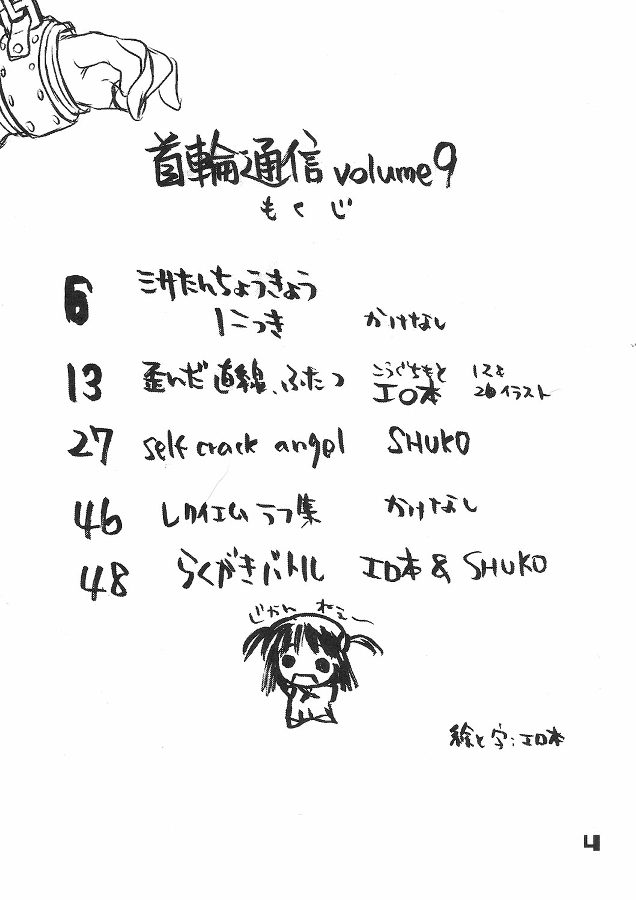 首輪通信 volume9
もくじ
6 ミサたんちょうきょう
にっき かけなし
13 歪んだ直線、ふたつ こうぐちもと エロ本 イラスト
27 self crack angel SHUKO
46 レクイエムラフ集 かけなし
48 らくがきバトル エロ本 & SHUKO
じかんねぇ〜
絵と字:エロ本
4